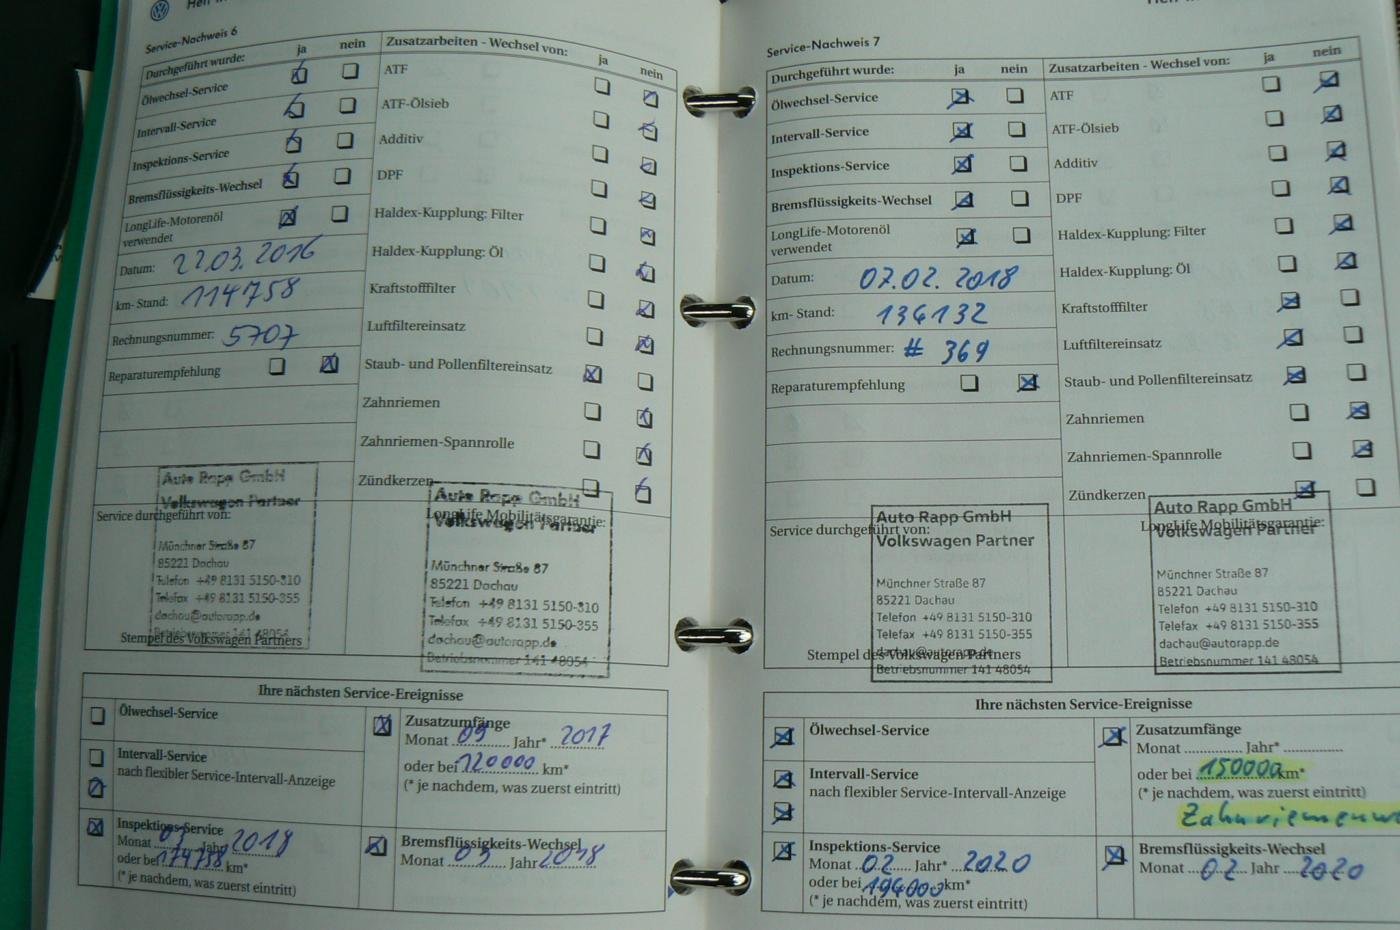 Service-Nachweis 6
Durchgeführt wurde: ja nein
Ölwechsel-Service
Intervall-Service
Inspektions-Service
Bremsflüssigkeits-Wechsel
LongLife-Motorenöl
verwendet
Datum: 22.03.2016
km- Stand: 114758
Rechnungsnummer: 5707
Reparaturempfehlung
Zusatzarbeiten - Wechsel von: ja nein
ATF
ATF-Ölsieb
Additiv
DPF
Haldex-Kupplung: Filter
Haldex-Kupplung: Öl
Kraftstofffilter
Luftfiltereinsatz
Staub- und Pollenfiltereinsatz
Zahnriemen
Zahnriemen-Spannrolle
Zündkerzen
Service durchgeführt von:
Auto Rapp GmbH
Volkswagen Partner
Münchner Straße 87
85221 Dachau
Telefon +49 8131 5150-310
Telefax +49 8131 5150-355
dachau@autorapp.de
Betriebsnummer 141 48054
Stempel des Volkswagen Partners
LongLife Mobilitätsgarantie:
Auto Rapp GmbH
Volkswagen Partner
Münchner Straße 87
85221 Dachau
Telefon +49 8131 5150-310
Telefax +49 8131 5150-355
dachau@autorapp.de
Betriebsnummer 141 48054
Ihre nächsten Service-Ereignisse
Ölwechsel-Service
Intervall-Service
nach flexibler Service-Intervall-Anzeige
Inspektions-Service
Monat 03 Jahr 2018
oder bei 174758 km*
(* je nachdem, was zuerst eintritt)
Zusatzumfänge
Monat 03 Jahr* 2017
oder bei 120000 km*
(* je nachdem, was zuerst eintritt)
Bremsflüssigkeits-Wechsel
Monat 03 Jahr 2018
Service-Nachweis 7
Durchgeführt wurde: ja nein
Ölwechsel-Service
Intervall-Service
Inspektions-Service
Bremsflüssigkeits-Wechsel
LongLife-Motorenöl
verwendet
Datum: 07.02.2018
km- Stand: 134132
Rechnungsnummer: # 369
Reparaturempfehlung
Zusatzarbeiten - Wechsel von: ja nein
ATF
ATF-Ölsieb
Additiv
DPF
Haldex-Kupplung: Filter
Haldex-Kupplung: Öl
Kraftstofffilter
Luftfiltereinsatz
Staub- und Pollenfiltereinsatz
Zahnriemen
Zahnriemen-Spannrolle
Zündkerzen
Service durchgeführt von:
Auto Rapp GmbH
Volkswagen Partner
Münchner Straße 87
85221 Dachau
Telefon +49 8131 5150-310
Telefax +49 8131 5150-355
dachau@autorapp.de
Betriebsnummer 141 48054
Stempel des Volkswagen Partners
LongLife Mobilitätsgarantie:
Auto Rapp GmbH
Volkswagen Partner
Münchner Straße 87
85221 Dachau
Telefon +49 8131 5150-310
Telefax +49 8131 5150-355
dachau@autorapp.de
Betriebsnummer 141 48054
Ihre nächsten Service-Ereignisse
Ölwechsel-Service
Intervall-Service
nach flexibler Service-Intervall-Anzeige
Inspektions-Service
Monat 02 Jahr* 2020
oder bei 194000 km*
(* je nachdem, was zuerst eintritt)
Zusatzumfänge
Monat Jahr*
oder bei 150000 km*
(* je nachdem, was zuerst eintritt)
Zahnriemenw
Bremsflüssigkeits-Wechsel
Monat 02 Jahr 2020